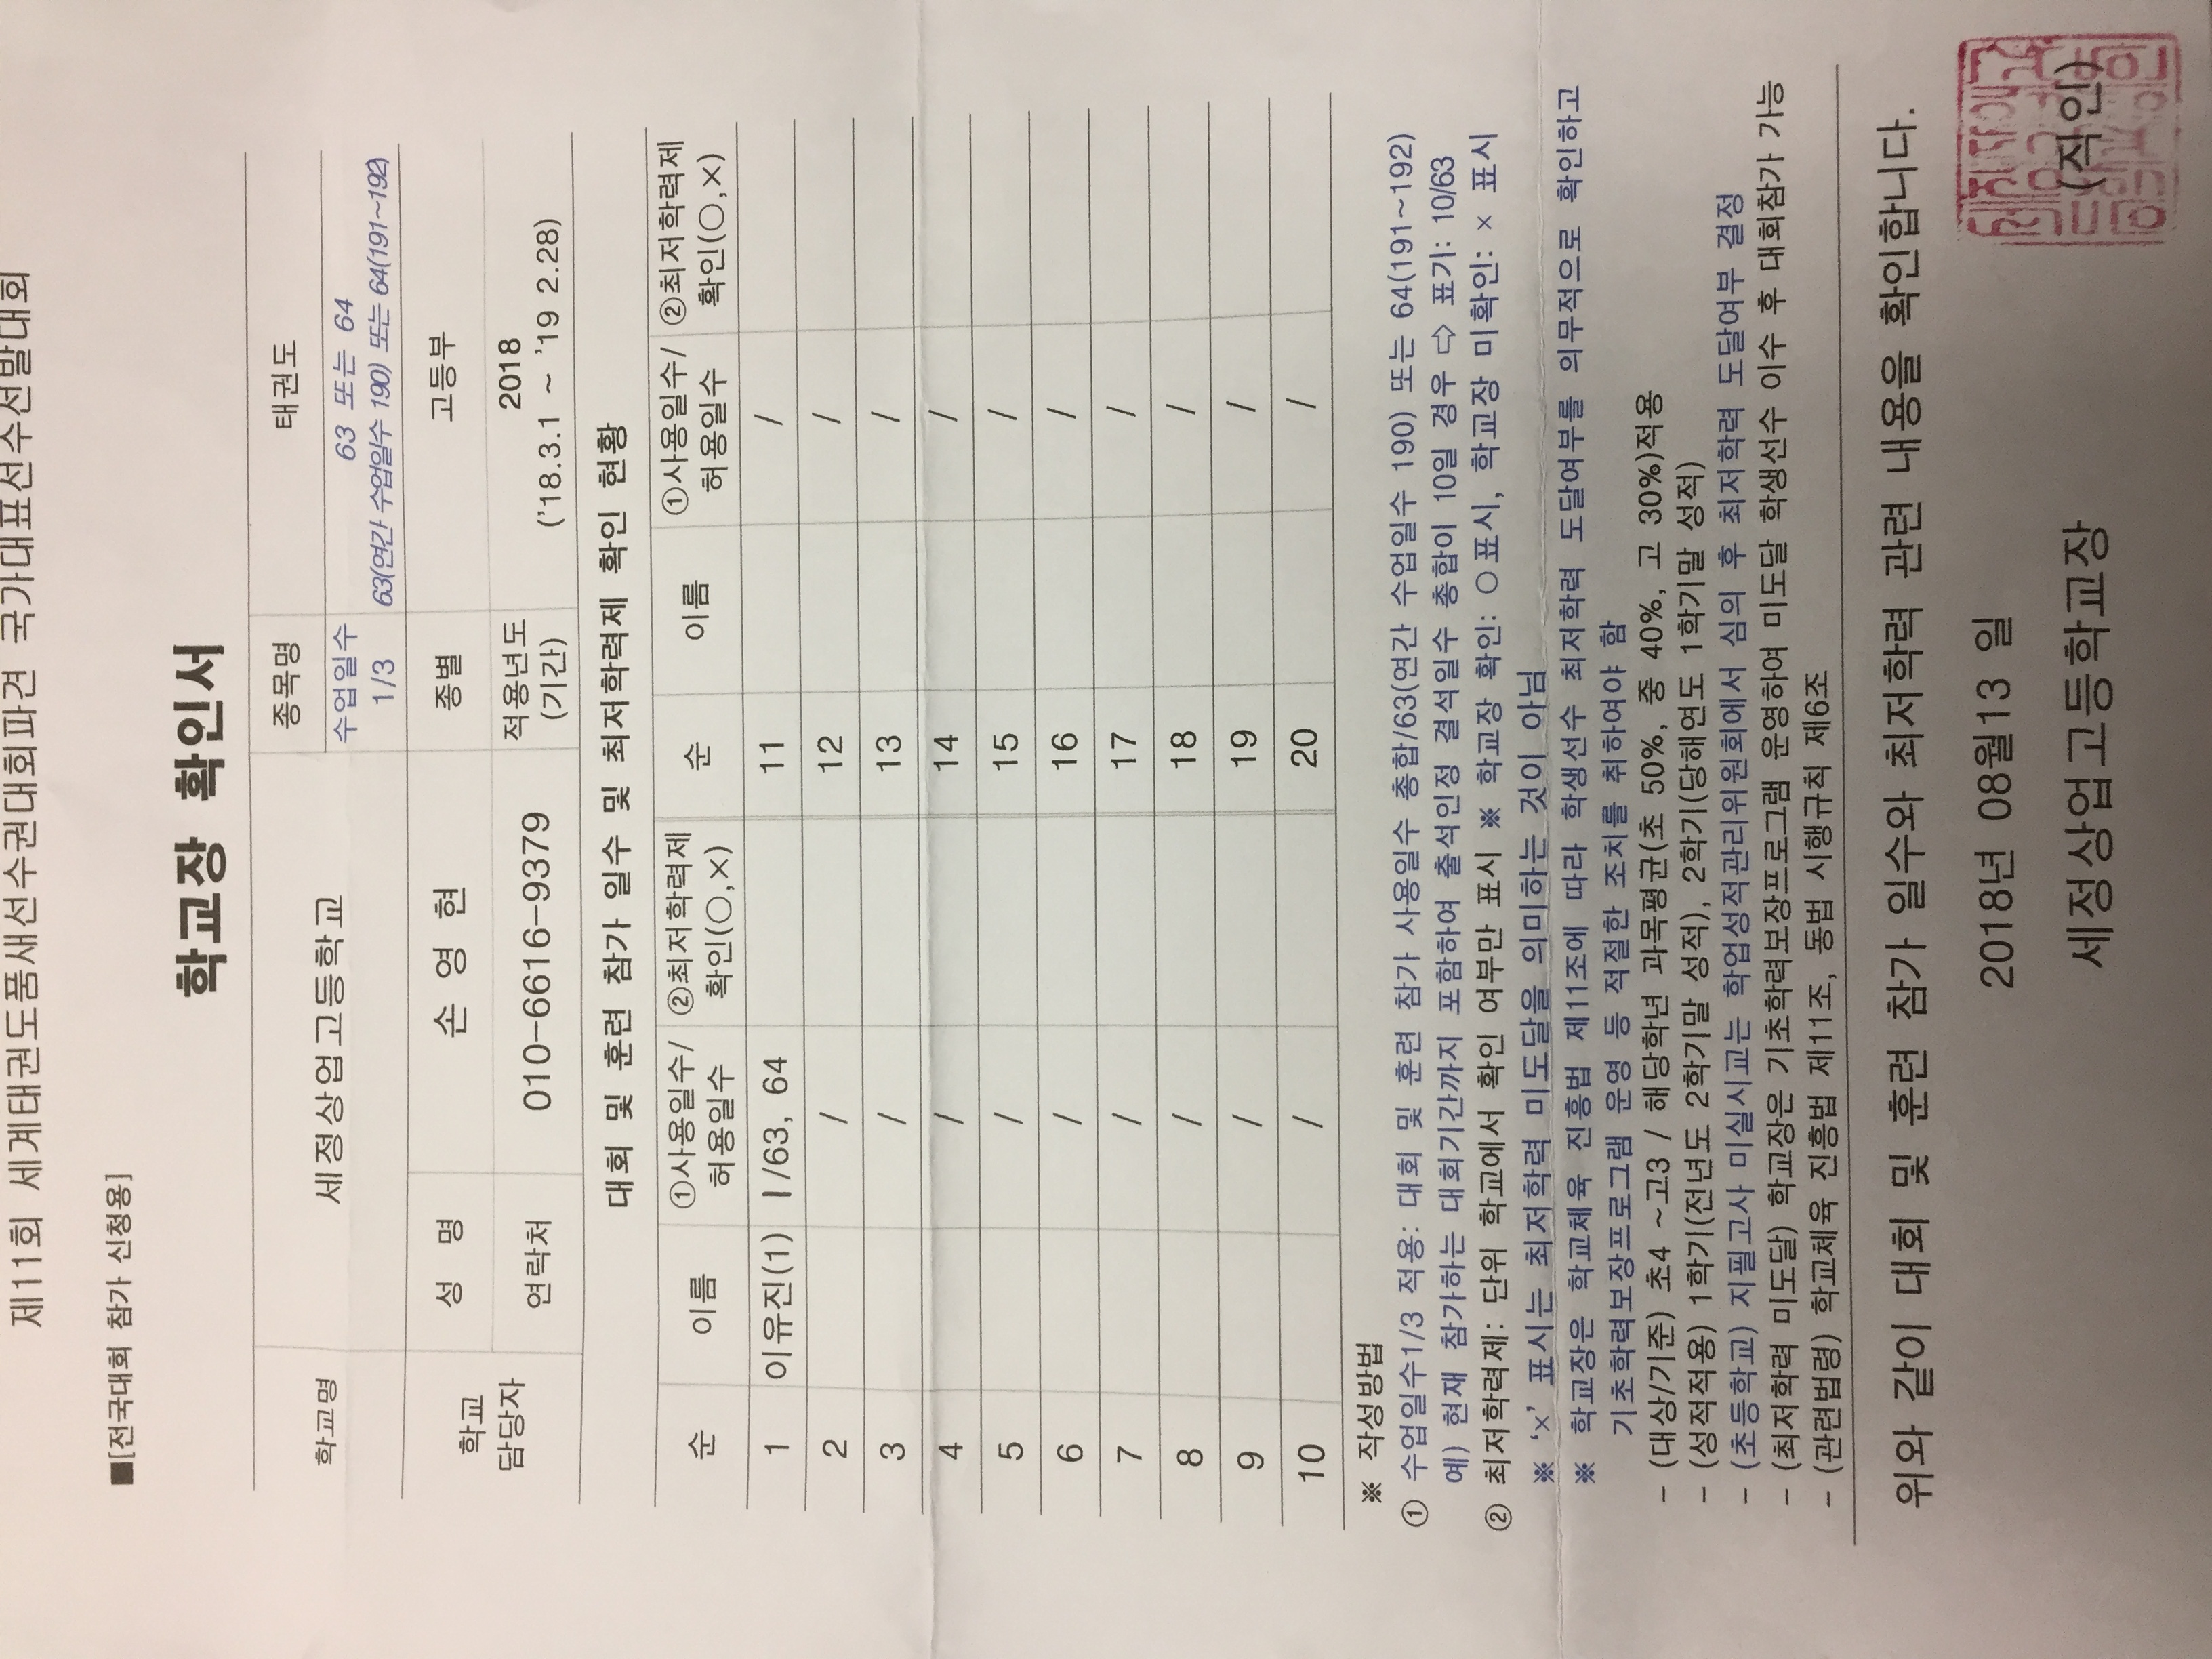 제11회 세계태권도품새선수권대회파견 국가대표선수선발대회
■[전국대회 참가 신청용]
학교장 확인서
학교명 세정상업고등학교 종목명 태권도
수업일수 1/3 63 또는 64
63(연간 수업일수 190) 또는 64(191~192)
학교 담당자 성 명 손 영 현 종별 고등부
연락처 010-6616-9379 적용년도 (기간) 2018
('18.3.1 ~ '19 2.28)
대회 및 훈련 참가 일수 및 최저학력제 확인 현황
순 이름 ①사용일수/허용일수 ②최저학력제 확인(○,×) 순 이름 ①사용일수/허용일수 ②최저학력제 확인(○,×)
1 이유진(1) 1/63, 64 11 /
2 / 12 /
3 / 13 /
4 / 14 /
5 / 15 /
6 / 16 /
7 / 17 /
8 / 18 /
9 / 19 /
10 / 20 /
※ 작성방법
① 수업일수1/3 적용: 대회 및 훈련 참가 사용일수 총합/63(연간 수업일수 190) 또는 64(191~192)
예) 현재 참가하는 대회기간까지 포함하여 출석인정 결석일수 총합이 10일 경우 ⇨ 표기: 10/63
② 최저학력제: 단위 학교에서 확인 여부만 표시 ※ 학교장 확인: ○표시, 학교장 미확인: × 표시
※ '×' 표시는 최저학력 미도달을 의미하는 것이 아님
※ 학교장은 학교체육 진흥법 제11조에 따라 학생선수 최저학력 도달여부를 의무적으로 확인하고
기초학력보장프로그램 운영 등 적절한 조치를 취하여야 함
- (대상/기준) 초4 ~고3 / 해당학년 과목평균(초 50%, 중 40%, 고 30%)적용
- (성적적용) 1학기(전년도 2학기말 성적), 2학기(당해연도 1학기말 성적)
- (초등학교) 지필고사 미실시교는 학업성적관리위원회에서 심의 후 최저학력 도달여부 결정
- (최저학력 미도달) 학교장은 기초학력보장프로그램 운영하여 미도달 학생선수 이수 후 대회참가 가능
- (관련법령) 학교체육 진흥법 제11조, 동법 시행규칙 제6조
위와 같이 대회 및 훈련 참가 일수와 최저학력 관련 내용을 확인합니다.
2018년 08월13 일
세정상업고등학교장 (직인)